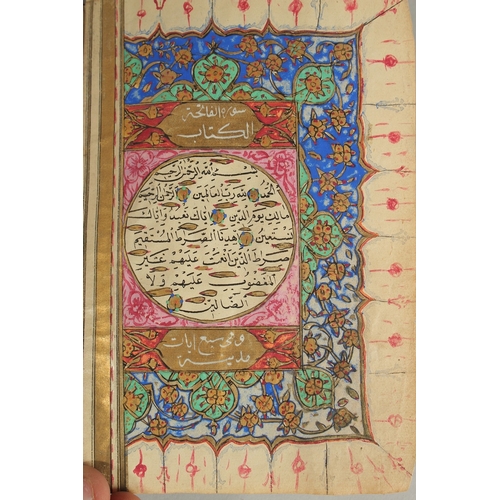 سورة الفاتحة
الكتاب
بسم الله الرحمن الرحيم
الحمد لله رب العالمين الرحمن الرحيم
مالك يوم الدين اياك نعبد واياك
نستعين اهدنا الصراط المستقيم
صراط الذين انعمت عليهم غير
المغضوب عليهم ولا
الضالين
وهي سبع ايات
مدنية